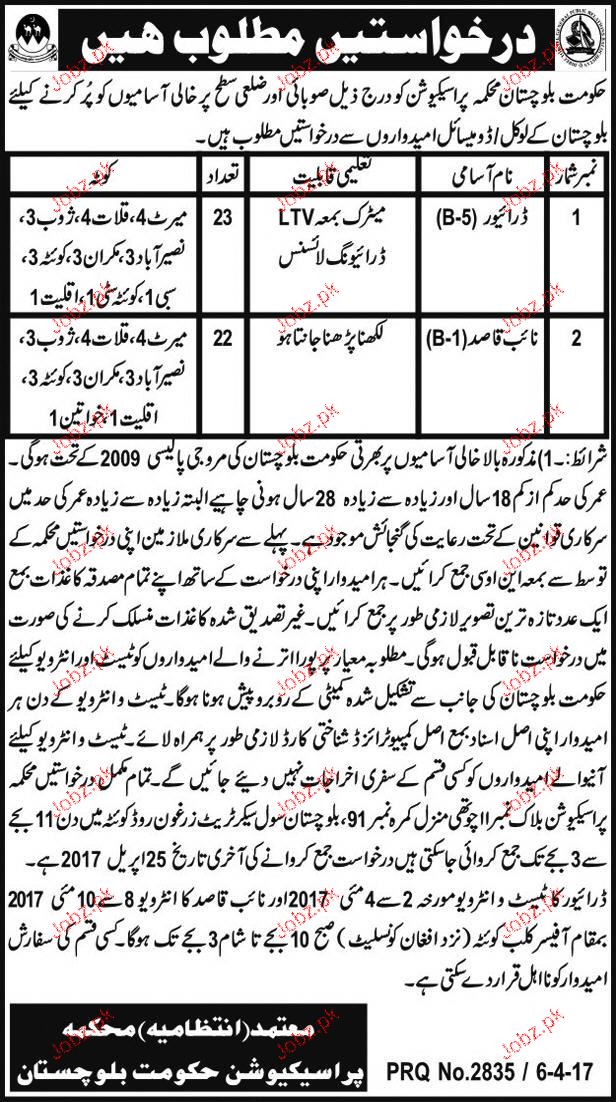 درخواستیں مطلوب ھیں
حکومت بلوچستان محکمہ پراسیکیوشن کو درج ذیل صوبائی اور ضلعی سطح پر خالی آسامیوں کو پُر کرنے کیلئے
بلوچستان کے لوکل/ڈومیسائل امیدواروں سے درخواستیں مطلوب ہیں۔
نمبر شمار نام آسامی تعلیمی قابلیت تعداد کوٹہ
1 ڈرائیور (B-5) میٹرک بمعہ LTV 23 میرٹ 4، قلات 4، ژوب 3،
ڈرائیونگ لائسنس نصیر آباد 3، مکران 3، کوئٹہ 3،
سبی 1، کوئٹہ سٹی 1، اقلیت 1
2 نائب قاصد (B-1) لکھنا پڑھنا جانتا ہو 22 میرٹ 4، قلات 4، ژوب 3،
نصیر آباد 3، مکران 3، کوئٹہ 3،
اقلیت 1، خواتین 1
شرائط:۔ 1) مذکورہ بالا خالی آسامیوں پر بھرتی حکومت بلوچستان کی مروجی پالیسی 2009 کے تحت ہوگی۔
عمر کی حد کم از کم 18 سال اور زیادہ سے زیادہ 28 سال ہونی چاہیے البتہ زیادہ سے زیادہ عمر کی حد میں
سرکاری قوانین کے تحت رعایت کی گنجائش موجود ہے۔ پہلے سے سرکاری ملازمین اپنی درخواستیں محکمہ کے
توسط سے بمعہ این او سی جمع کرائیں۔ ہر امیدوار اپنی درخواست کے ساتھ اپنے تمام مصدقہ کاغذات بمع
ایک عدد تازہ ترین تصویر لازمی طور پر جمع کرائیں۔ غیر تصدیق شدہ کاغذات منسلک کرنے کی صورت
میں درخواست ناقابل قبول ہوگی۔ مطلوبہ معیار پر پورا اترنے والے امیدواروں کو ٹیسٹ اور انٹرویو کیلئے
حکومت بلوچستان کی جانب سے تشکیل شدہ کمیٹی کے روبرو پیش ہونا ہوگا۔ ٹیسٹ و انٹرویو کے دن ہر
امیدوار اپنی اصل اسناد بمع اصل کمپیوٹرائزڈ شناختی کارڈ لازمی طور پر ہمراہ لائے۔ ٹیسٹ و انٹرویو کیلئے
آنیوالے امیدواروں کو کسی قسم کے سفری اخراجات نہیں دیئے جائیں گے۔ تمام مکمل درخواستیں محکمہ
پراسیکیوشن بلاک نمبر 1 چوتھی منزل کمرہ نمبر 91، بلوچستان سول سیکرٹریٹ زرغون روڈ کوئٹہ میں دن 11 بجے
سے 3 بجے تک جمع کروائی جاسکتی ہیں درخواست جمع کروانے کی آخری تاریخ 25 اپریل 2017 ہے۔
ڈرائیور کا ٹیسٹ و انٹرویو مورخہ 2 سے 4 مئی 2017 اور نائب قاصد کا انٹرویو 8 سے 10 مئی 2017
بمقام آفیسر کلب کوئٹہ (نزد افغان کونسلیٹ) صبح 10 بجے تا شام 3 بجے تک ہوگا۔ کسی قسم کی سفارش
امیدوار کو نااہل قرار دے سکتی ہے۔
معتمد (انتظامیہ) محکمہ
پراسیکیوشن حکومت بلوچستان
PRQ No.2835 / 6-4-17
Jobz.pk